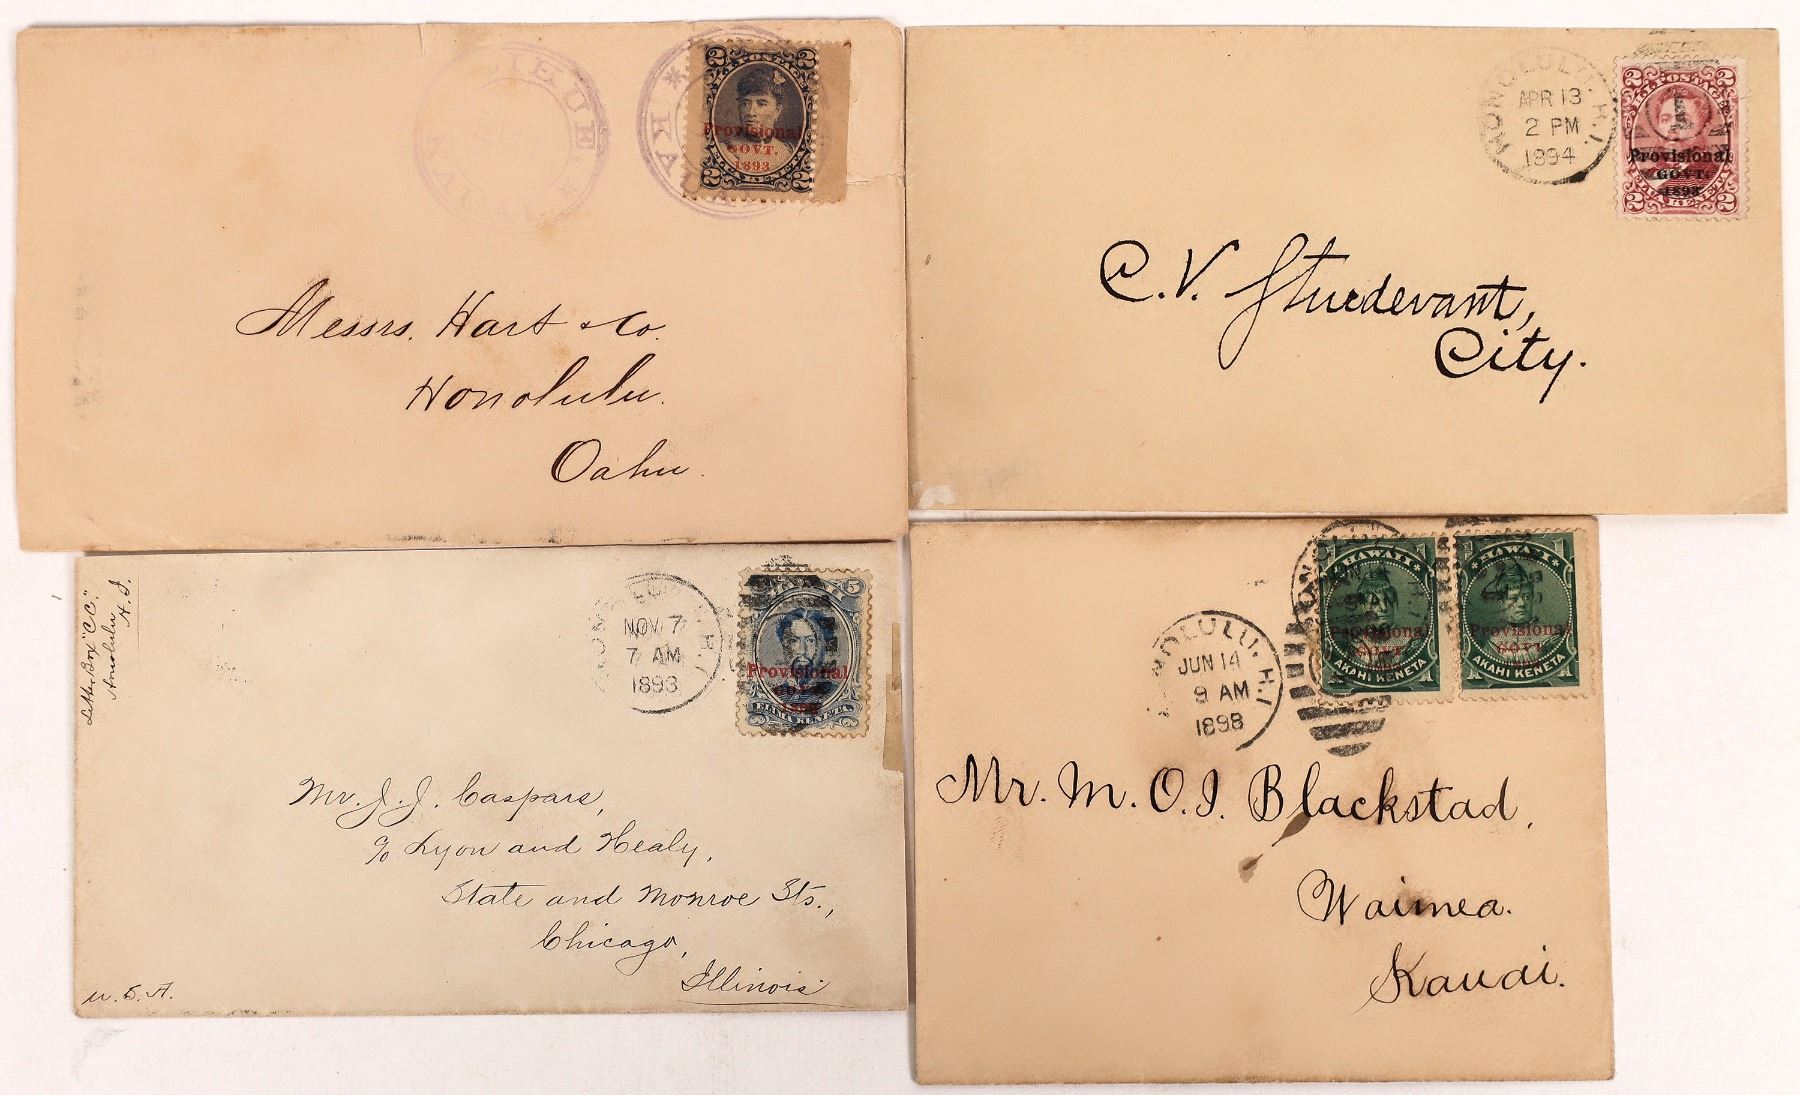 LIHUE,
KAUAI
KAUAI
2 2
Provisional
GOVT.
1893
Messrs. Hart & Co.
Honolulu.
Oahu.
HONOLULU. H.I.
APR 13
2 PM
1894
2 2
H.I. POSTAGE
Provisional
GOVT.
1893
ELUA KENETA
C. V. Sturdevant,
City.
Letter Box "C.C."
Honolulu
H. I.
HONOLULU. H.I.
NOV 7
7 AM
1893
5
Provisional
GOVT.
1893
ELIMA KENETA
Mr. J. J. Caspars,
c/o Lyon and Healy,
State and Monroe Sts.,
Chicago,
Illinois
U. S. A.
HONOLULU. H.I.
JUN 14
9 AM
1898
9 AM
HAWAII
Provisional
GOVT.
AKAHI KENETA
HAWAII
Provisional
GOVT.
AKAHI KENETA
Mr. M. O. I. Blackstad,
Waimea.
Kauai.